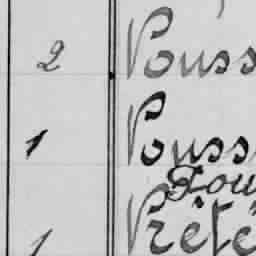 2 Pouss
1 Pouss
Pou
1 Prêté